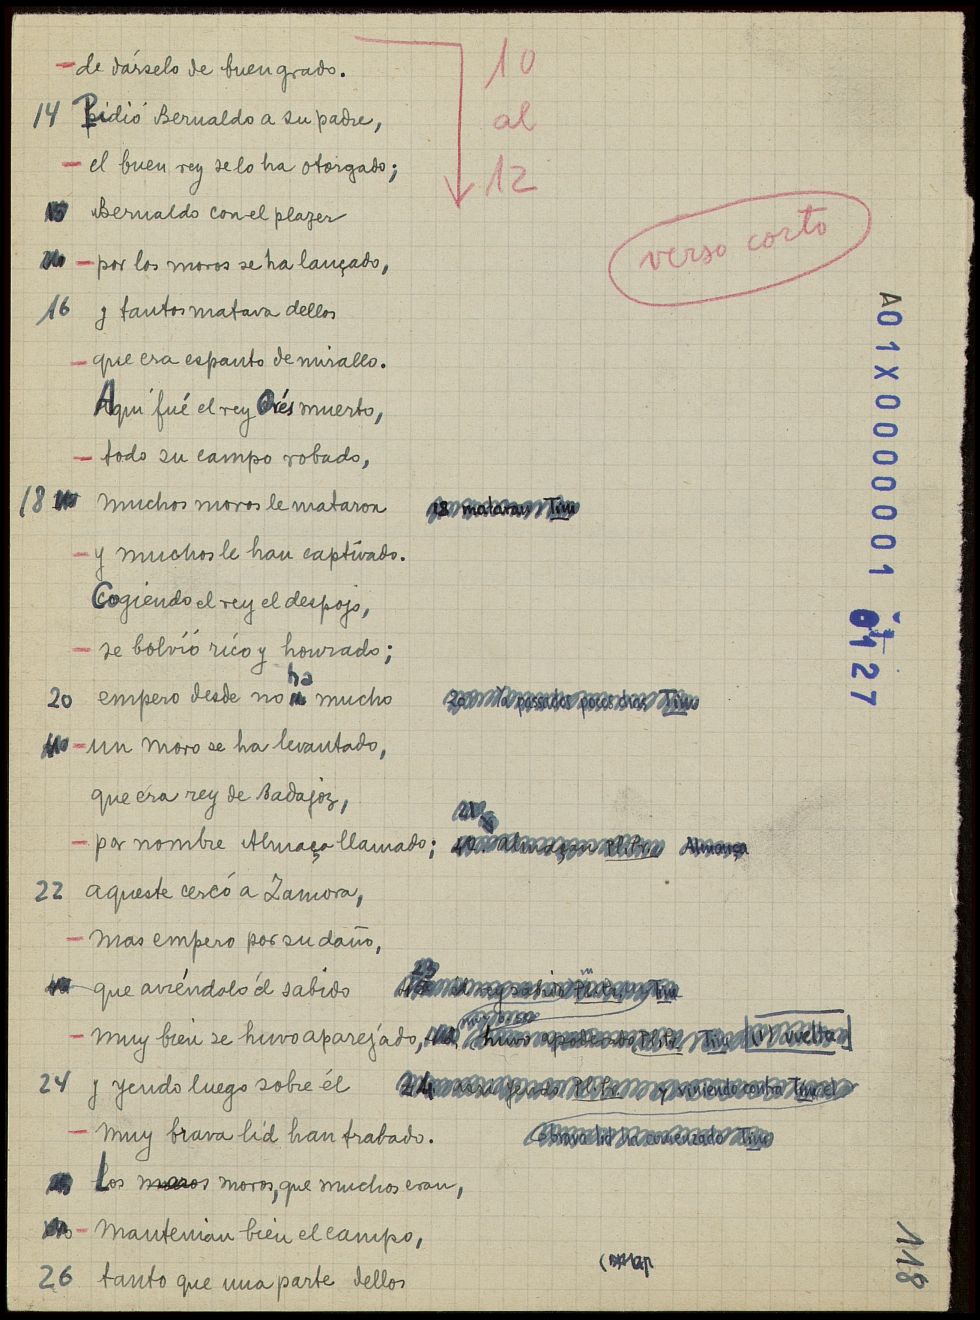 - de dárselo de buen grado.
10
al
12
14 Pidió Bernaldo a su padre,
- el buen rey se lo ha otorgado;
Bernaldo con el plazer
verso corto
- por los moros se ha lançado,
16 y tantos matava dellos
- que era espanto de mirallo.
Aquí fué el rey Orés muerto,
- todo su campo robado,
18 muchos moros le mataron 18 mataran Tim
- y muchos le han captivado.
Cogiendo el rey el despojo,
- se bolvió rico y honrado;
20 empero desde no ha mucho 20 Ya passados pocos dias Tim
- un moro se ha levantado,
que era rey de Badajoz,
21
- por nombre Almaça llamado;
22 aqueste cercó a Zamora,
- mas empero por su daño,
23
que aviéndolo él sabido
- muy bien se huvo aparejado, huvo apoderado Tim vuelta
24 y yendo luego sobre él 24 y viniendo contra Tim el
- muy brava lid han trabado. brava lid ha comenzado Tim
Los moros, que muchos eran,
- mantenían bien el campo,
26 tanto que una parte dellos
A01X0000001
0127
118